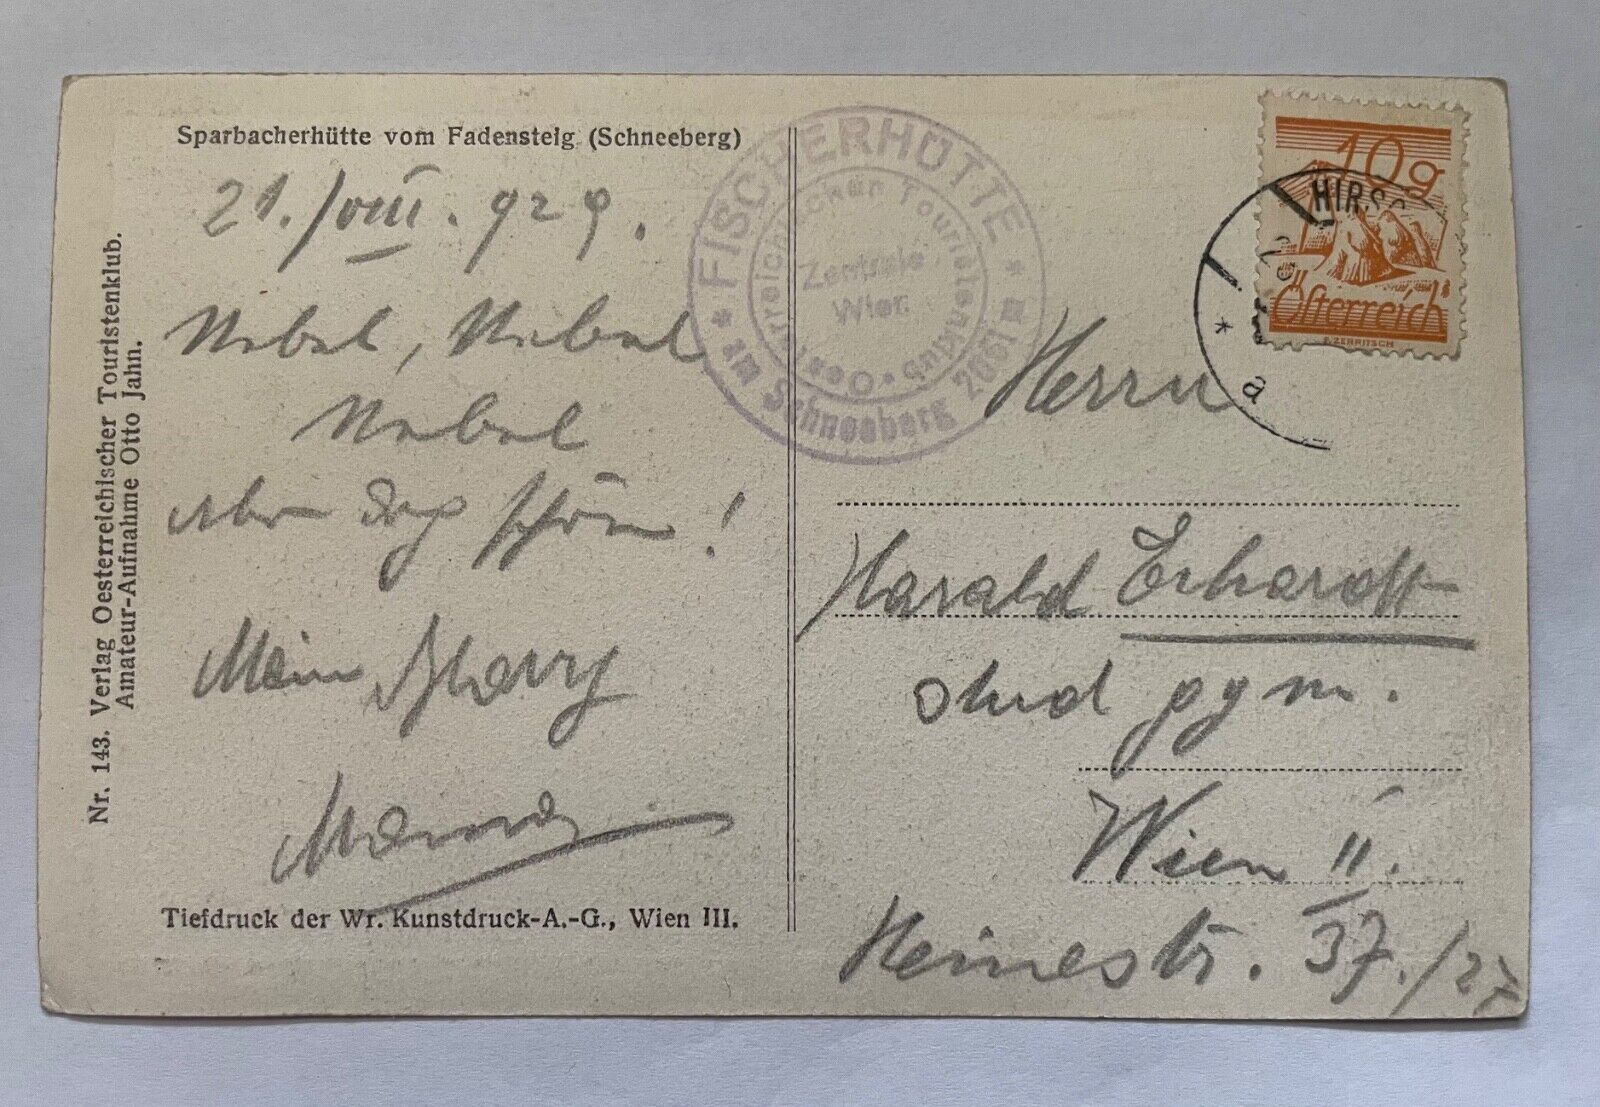 Sparbacherhütte vom Fadensteig (Schneeberg)
21./VIII. 929.
Nebel, Nebel
Nebel
aber doch schön!
Mein
Nr. 143. Verlag Oesterreichischer Touristenklub.
Amateur-Aufnahme Otto Jahn.
Tiefdruck der Wr. Kunstdruck-A.-G., Wien III.
* FISCHERHÜTTE *
am Schneeberg 2051 m
Oesterreichischen Touristenklub •
Zentrale
Wien
10g
Österreich
E. ZERRITSCH
HIRSC
* a
Herrn
Harald Erhardt
stud gym.
Wien II.
Heinestr. 37./27